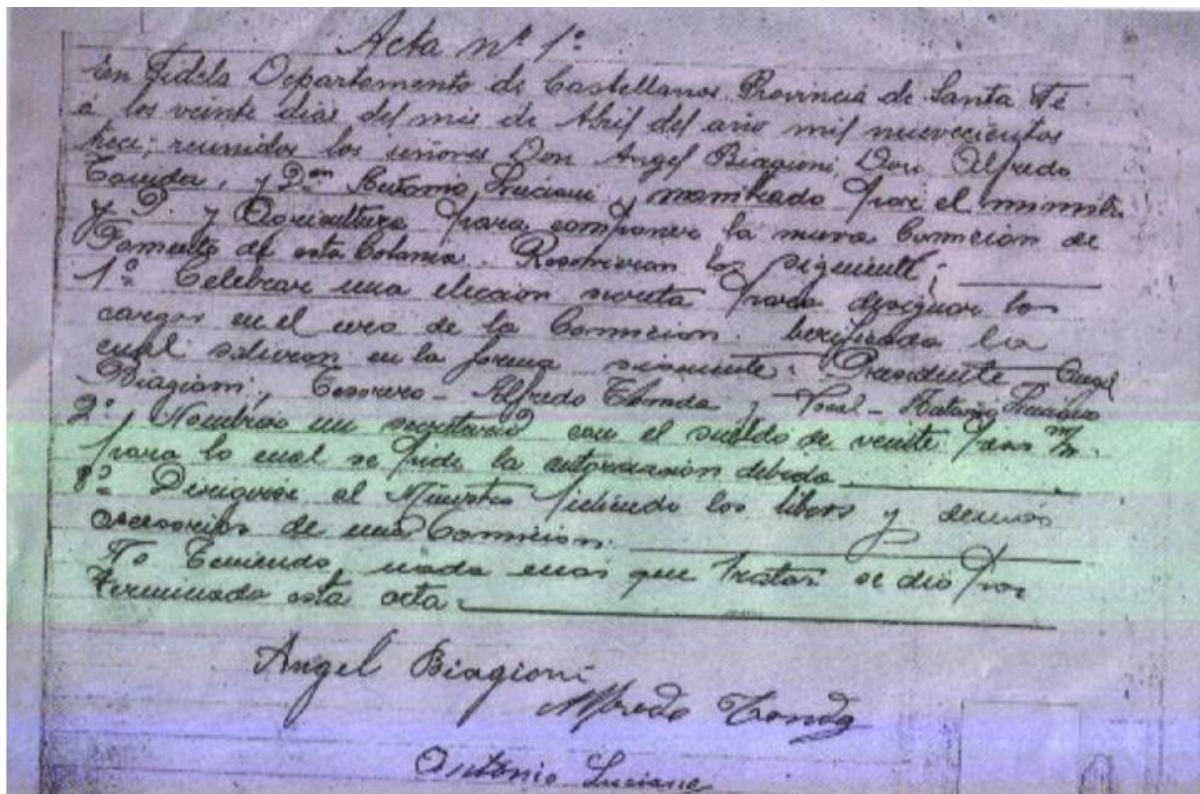 Acta nº 1º
En Fidela Departamento de Castellanos Provincia de Santa Fé
á los veinte dias del mes de Abril del año mil nuevecientos
trece; reunidos los señores Don Angel Biagioni, Don Alfredo
Tonda, y Dn Antonio Luciani, nombrado por el
y Agricultura para componer la nueva Comicion de
Fomento de esta Colonia. Resolvieron lo siguiente:
1º Celebrar una eleccion secreta para designar los
cargos en el seno de la Comicion. berificada la
cual salieron en la forma siguiente: Presidente Angel
Biagioni, Tesorero - Alfredo Tonda, Vocal - Antonio Luciano
2º Nombrar un secretario con el sueldo de veinte pesos m/n.
para lo cual se pide la autorizacion debida
3º Dirigirse al Ministro pidiendo los libros y demás
accesorios de una Comicion.
No Teniendo nada mas que tratar se dio por
Terminada esta acta.
Angel Biagioni
Alfredo Tonda
Antonio Luciano